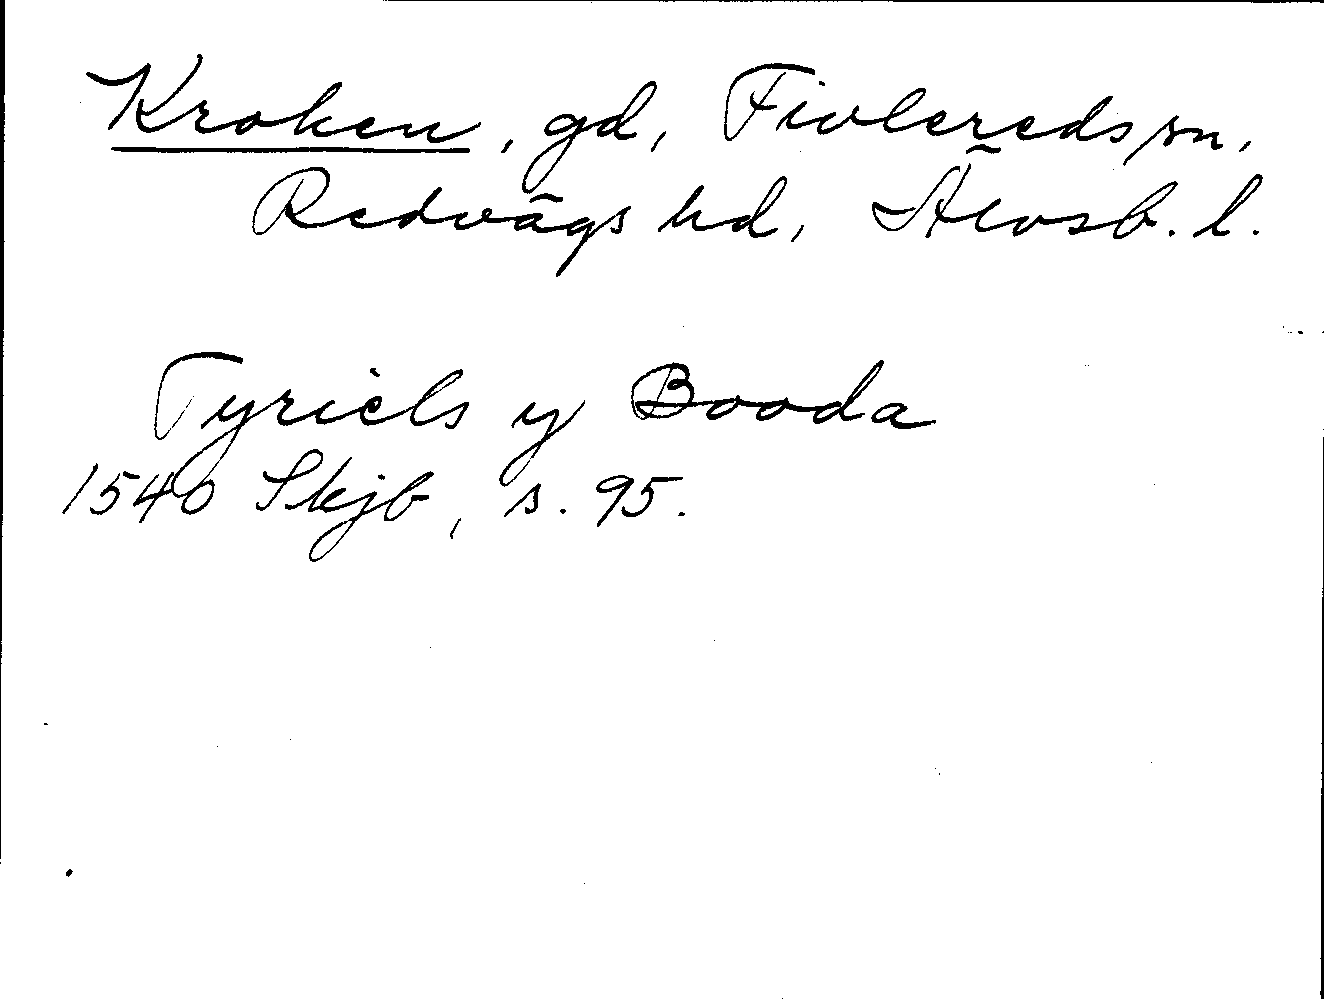 Kroken, gd, Fivlereds sn,
Redvägs hd, Älvsb. l.
Tyriels y Booda
1540 Skjb, s. 95.